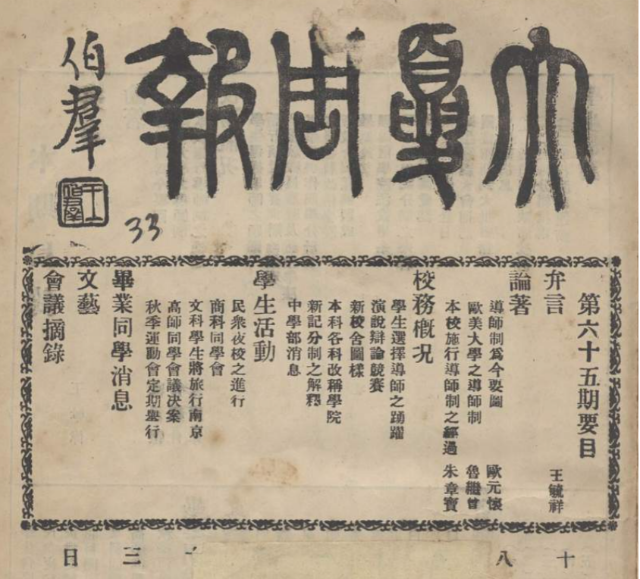 大夏周報
伯羣
王伯羣
33
第六十五期要目
弁言 王毓祥
論著
導師制爲今要圖 歐元懷
歐美大學之導師制 魯繼曾
本校施行導師制之經過 朱章寶
校務槪况
學生選擇導師之踴躍
演說辯論競賽
新校舍圖樣
本科各科改稱學院
新記分制之解釋
中學部消息
學生活動
民衆夜校之進行
商科同學會
文科學生將旅行南京
高師同學會議決案
秋季運動會定期舉行
畢業同學消息
文藝
會議摘錄
十八
三日